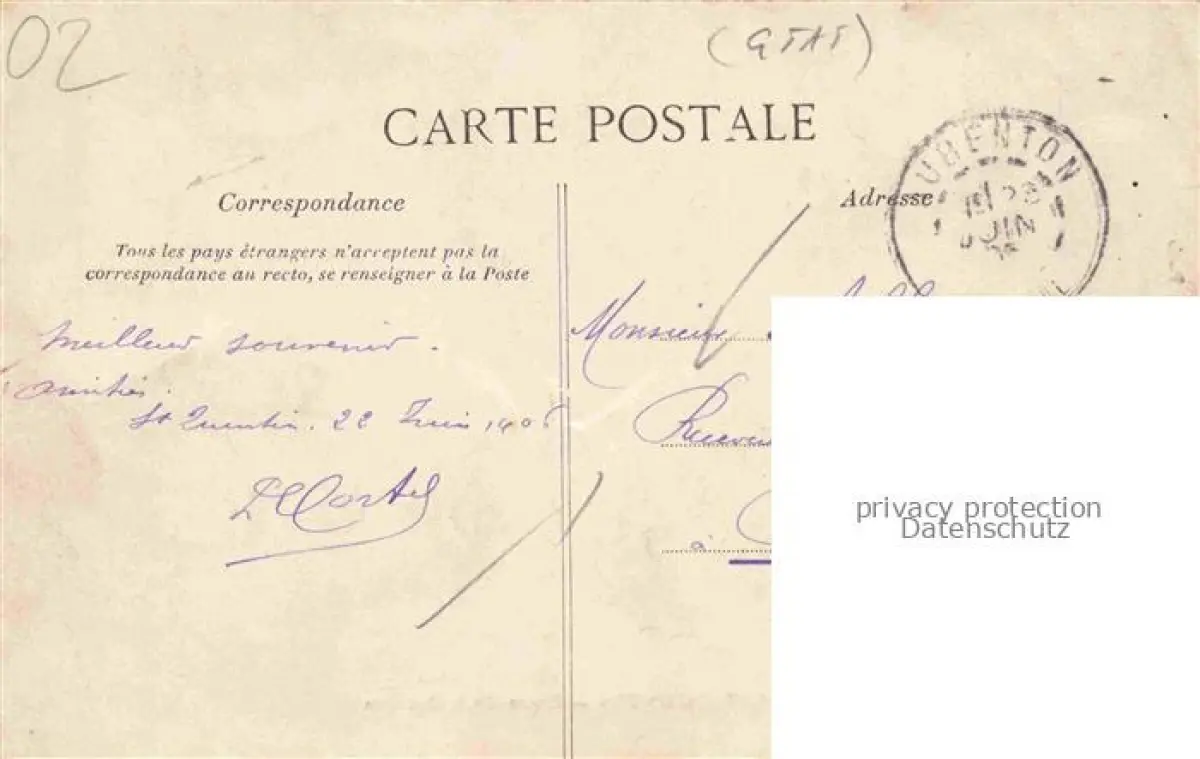 02
(GTAT)
CARTE POSTALE
UBENTON
JUIN
Correspondance
Adresse
Tous les pays étrangers n'acceptent pas la
correspondance au recto, se renseigner à la Poste
Meilleur souvenir.
Monsieur
amitiés.
St Quentin. 22 Juin 190
à
privacy protection
Datenschutz